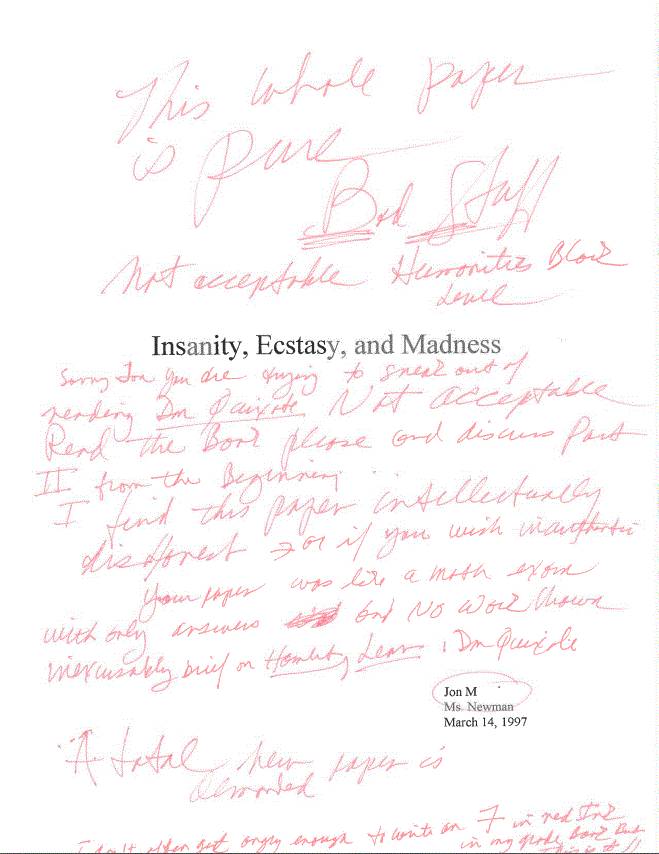 This whole paper
is pure
Bad Stuff
Not acceptable Humanities Block
Level
Insanity, Ecstasy, and Madness
Sorry Jon you are trying to sneak out of
reading Don Quixote Not acceptable
Read the Book please and discuss Part
II from the Beginning
I find this paper intellectually
dishonest → or if you wish inauthentic
Your paper was like a math exam
with only answers and No work shown
inexcusably brief on Hamlet, Lear, Don Quixote
Jon M
Ms. Newman
March 14, 1997
A total new paper is
demanded
I don't often get angry enough to write an F in red Ink
in my grade Book But
This is it!!